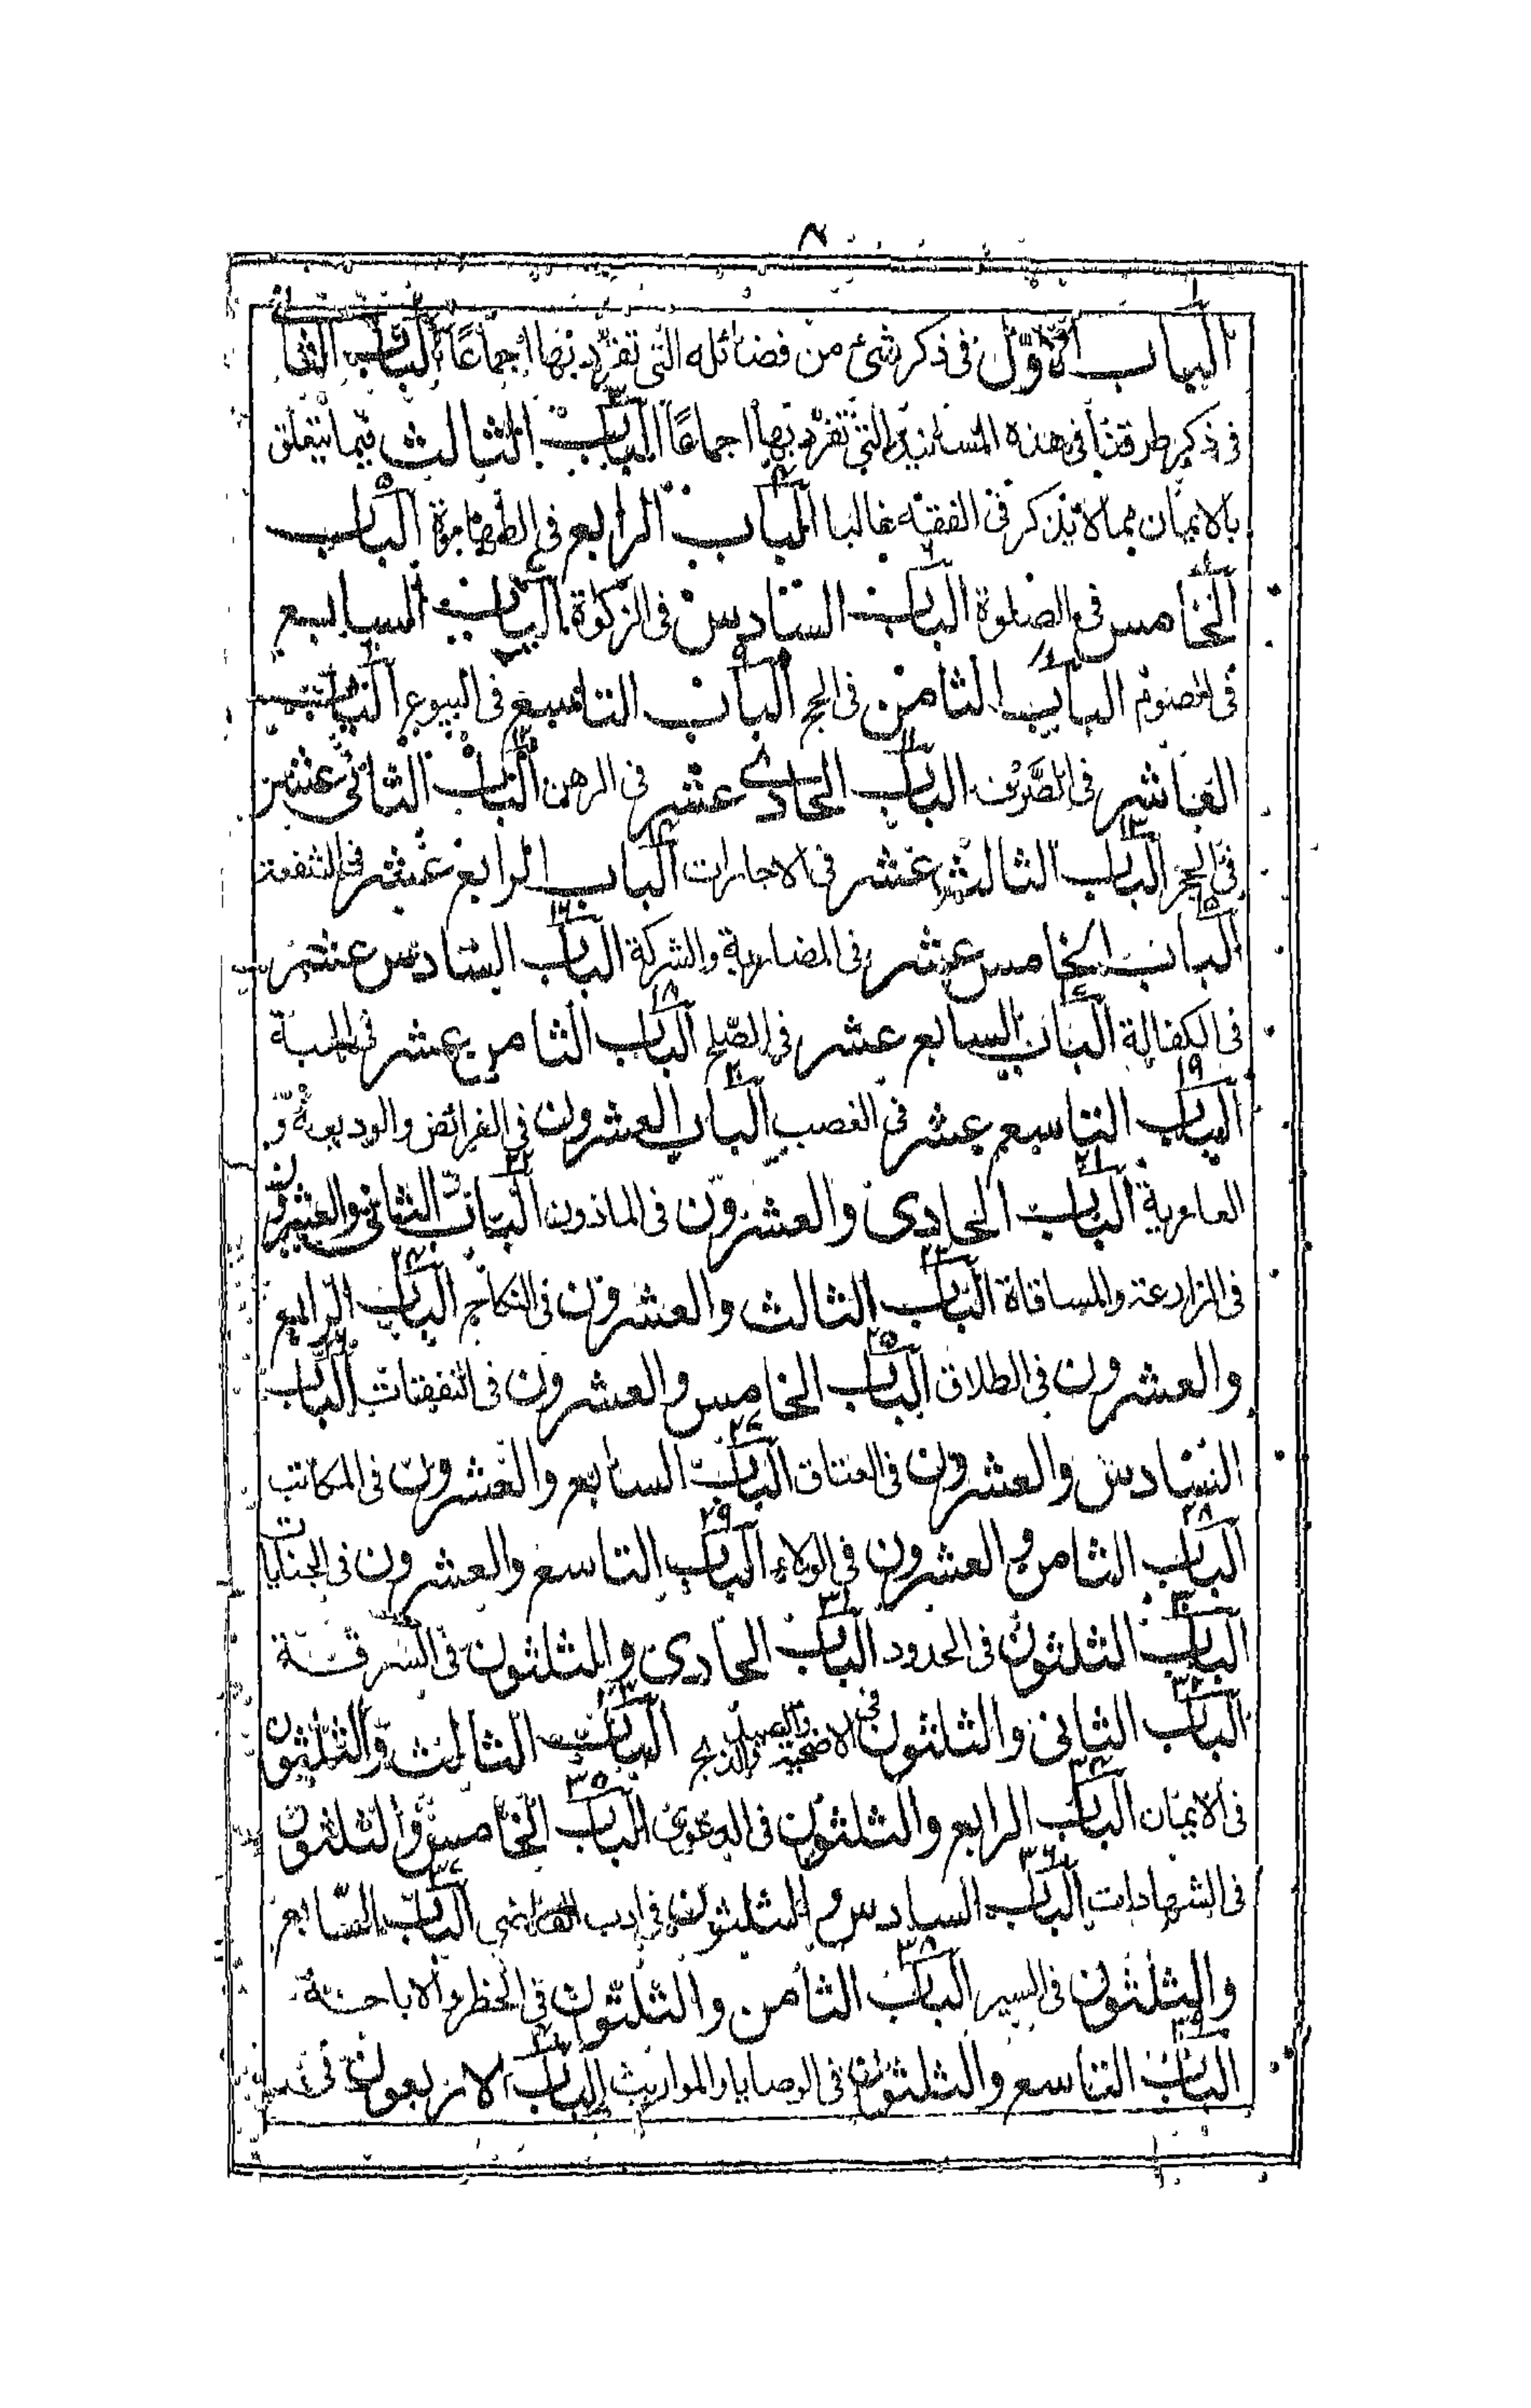 الباب الاول فى ذكر شئ من فضائله التى تفرد بها اجماعًا الباب الثانى
فى ذكر طرقنا فى هذه المسانيد التى تفرد بها اجماعًا الباب الثالث فيما يتعلق
بالايمان مما لا يذكر فى الفقه غالبا الباب الرابع فى الطهارة الباب
الخامس فى الصلوة الباب السادس فى الزكوة الباب السابع
فى الصوم الباب الثامن فى الحج الباب التاسع فى البيوع الباب
العاشر فى الصرف الباب الحادى عشر فى الرهن الباب الثانى عشر
فى الحجر الباب الثالث عشر فى الاجارات الباب الرابع عشر فى الشفعة
الباب الخامس عشر فى المضاربة والشركة الباب السادس عشر
فى الكفالة الباب السابع عشر فى الصلح الباب الثامن عشر فى الهبة
الباب التاسع عشر فى الغصب الباب العشرون فى القرائض والوديعة و
العارية الباب الحادى والعشرون فى الماذون الباب الثانى والعشرون
فى المزارعة والمساقاة الباب الثالث والعشرون فى النكاح الباب الرابع
والعشرون فى الطلاق الباب الخامس والعشرون فى النفقات الباب
السادس والعشرون فى العتاق الباب السابع والعشرون فى المكاتب
الباب الثامن والعشرون فى الولاء الباب التاسع والعشرون فى الجنايات
الباب الثلثون فى الحدود الباب الحادى والثلثون فى السرقة
الباب الثانى والثلثون فى الاضحية والصيد والذبح الباب الثالث والثلثون
فى الايمان الباب الرابع والثلثون فى الدعوى الباب الخامس والثلثون
فى الشهادات الباب السادس والثلثون فى ادب القاضى الباب السابع
والثلثون فى السير الباب الثامن والثلثون فى الحظر والاباحة
الباب التاسع والثلثون فى الوصايا والمواريث الباب الاربعون فى